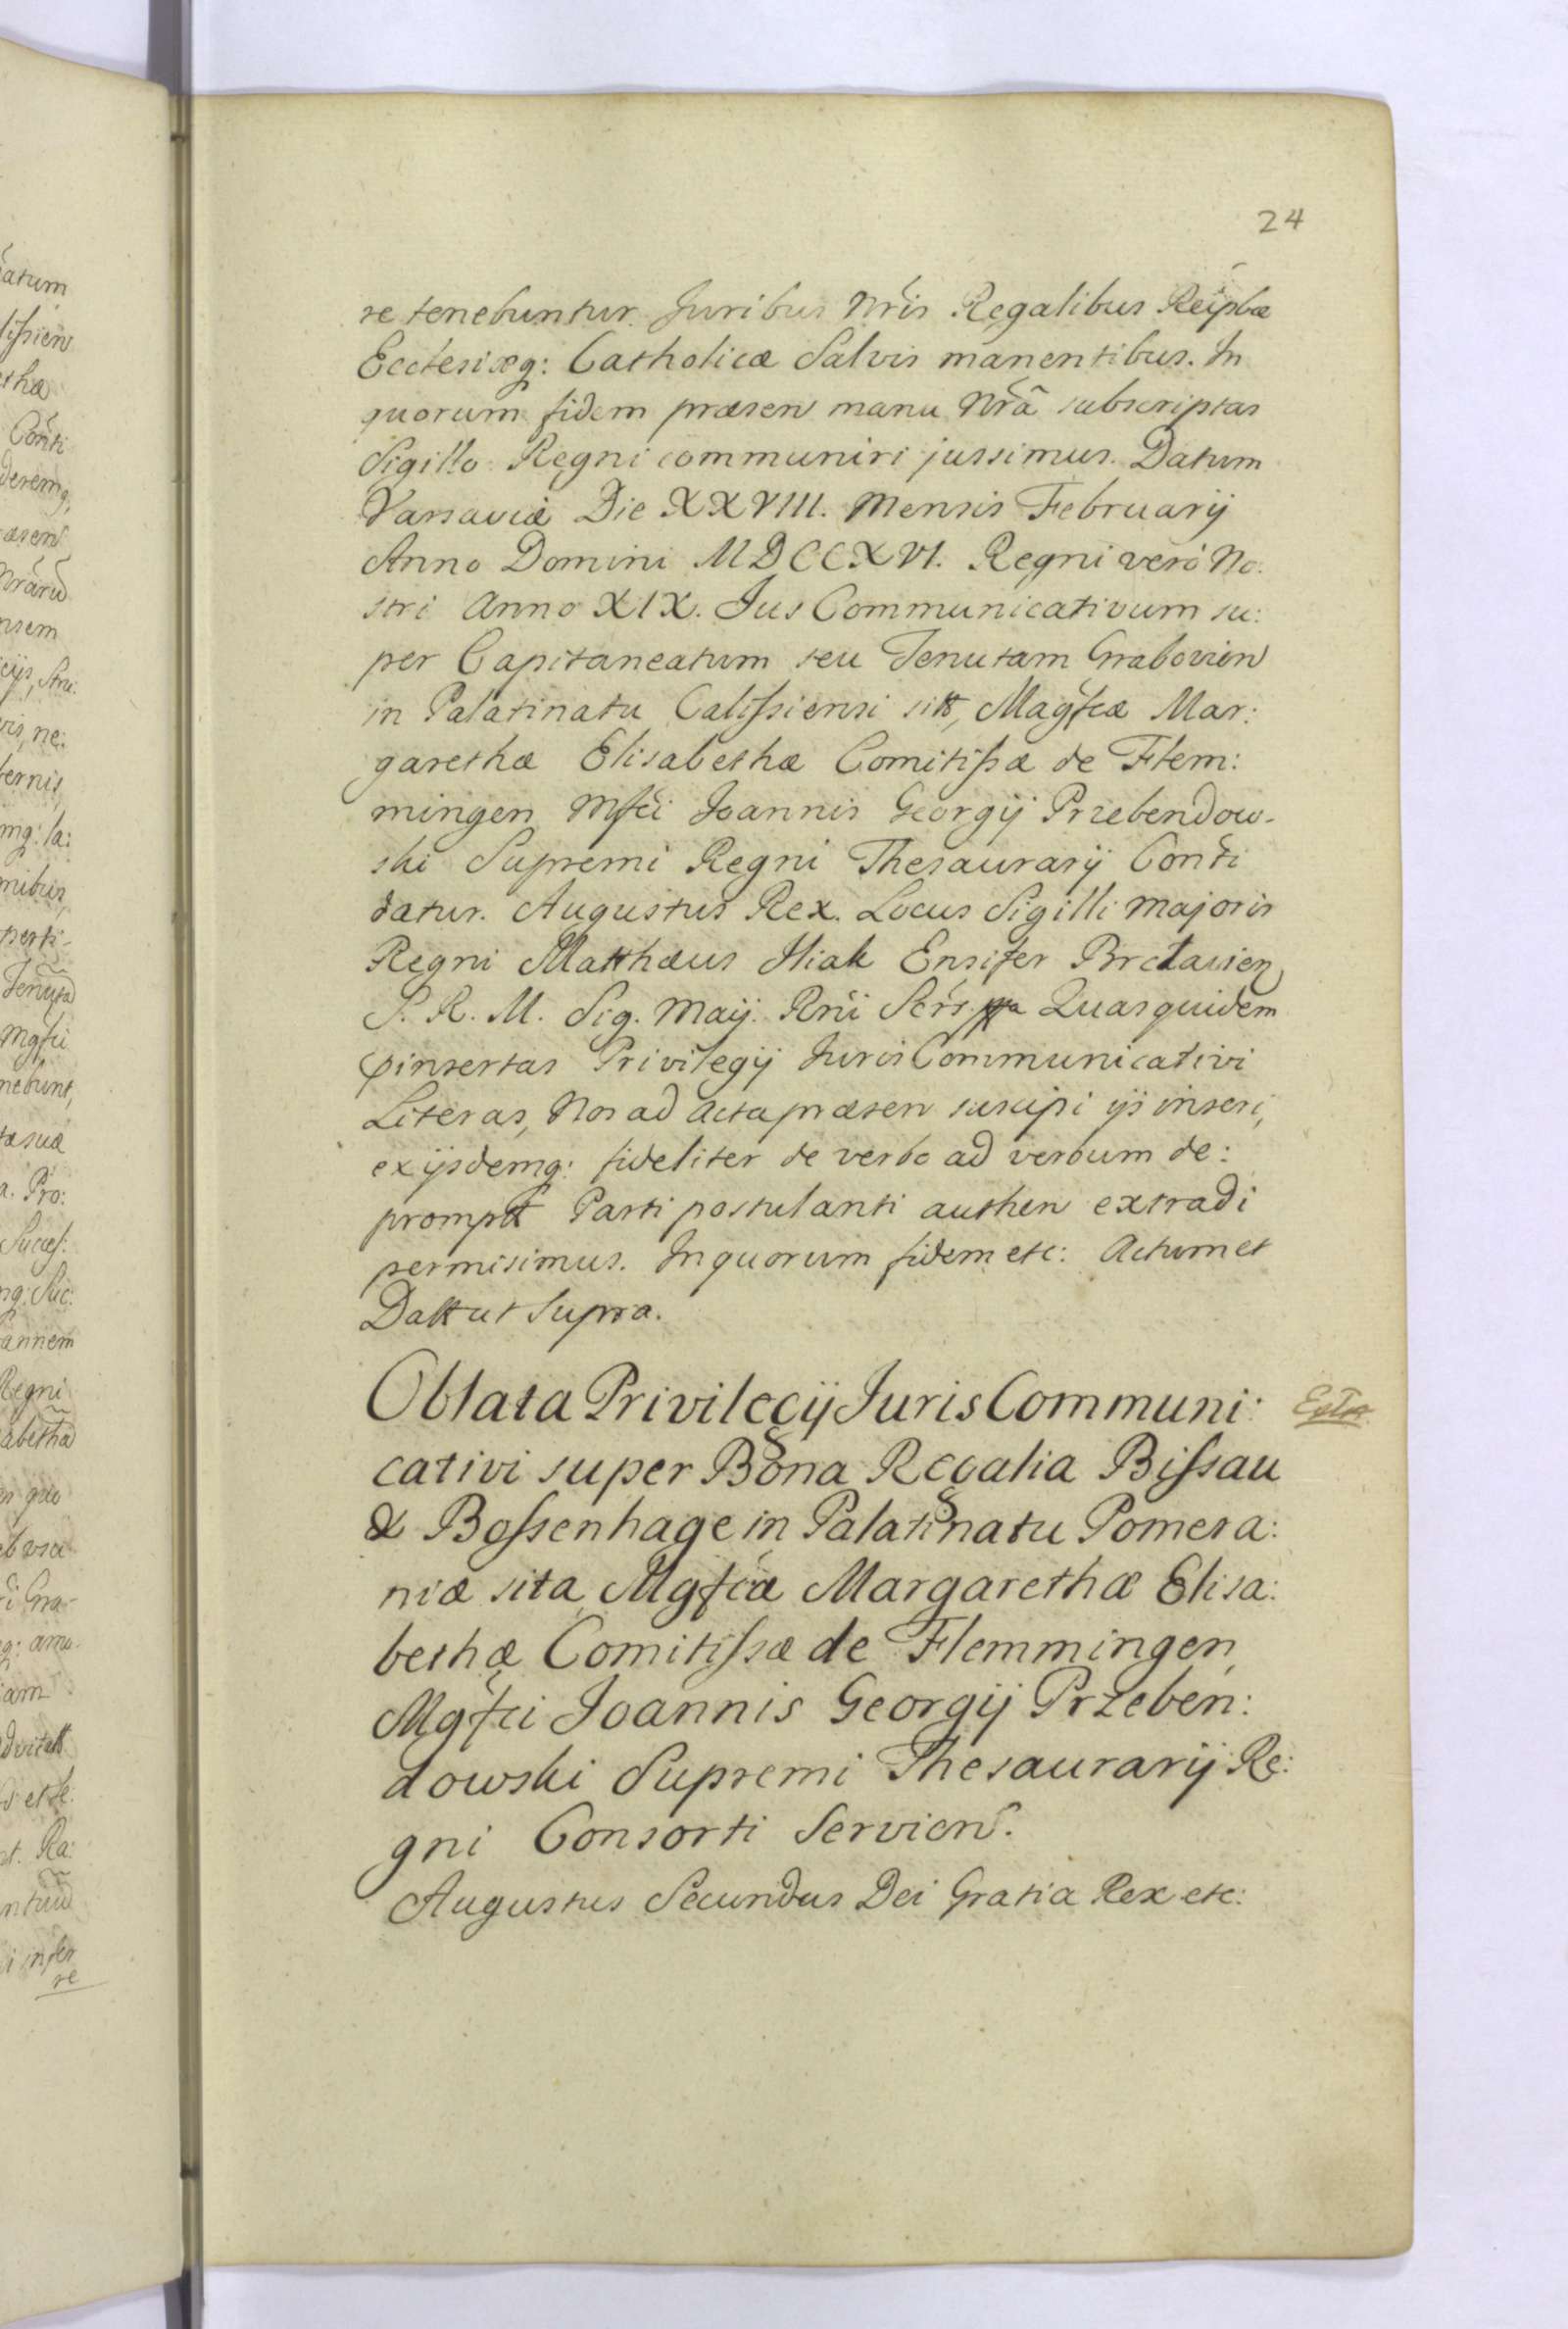 24
re tenebuntur. Juribus Nris Regalibus Reipbæ
Ecclesiæq: Catholicæ Salvis manentibus. In
quorum fidem præsen manu Nrã subscriptas
Sigillo Regni communiri jussimus. Datum
Varsaviæ Die XXVIII. Mensis Februarij
Anno Domini MDCCXVI. Regni verò No:
stri Anno XIX. Jus Communicativum su:
per Capitaneatum seu Tenutam Grabovien
in Palatinatu Calissiensi sitt, Magfcæ Mar:
garethæ Elisabethæ Comitissæ de Flem:
mingen Mfci Joannis Georgij Przebendow-
ski Supremi Regni Thesaurarij Conti
datur. Augustus Rex. Locus Sigilli Majoris
Regni Matthæus Iliak Ensifer Brclavien
S. R. M. Sig. Maij. Rni Scrs. Quas quidem
pinsertas Privilegij Juris Communicativi
Literas, Nos ad Acta præsen suscipi ijs inseri,
ex ijsdemq: fideliter de verbo ad verbum de:
prompt Parti postulanti authen extradi
permisimus. In quorum fidem etc: Actum et
Datt ut Supra.
Oblata Privilegij Juris Communi:
cativi super Bona Regalia Bissau
& Bossenhage in Palatinatu Pomera:
niæ sita Mgfcæ Margarethæ Elisa:
bethæ Comitissæ de Flemmingen,
Mgfci Joannis Georgij Przeben:
dowski Supremi Thesaurarij Re:
gni Consorti Servien.
Augustus Secundus Dei Gratia Rex etc: